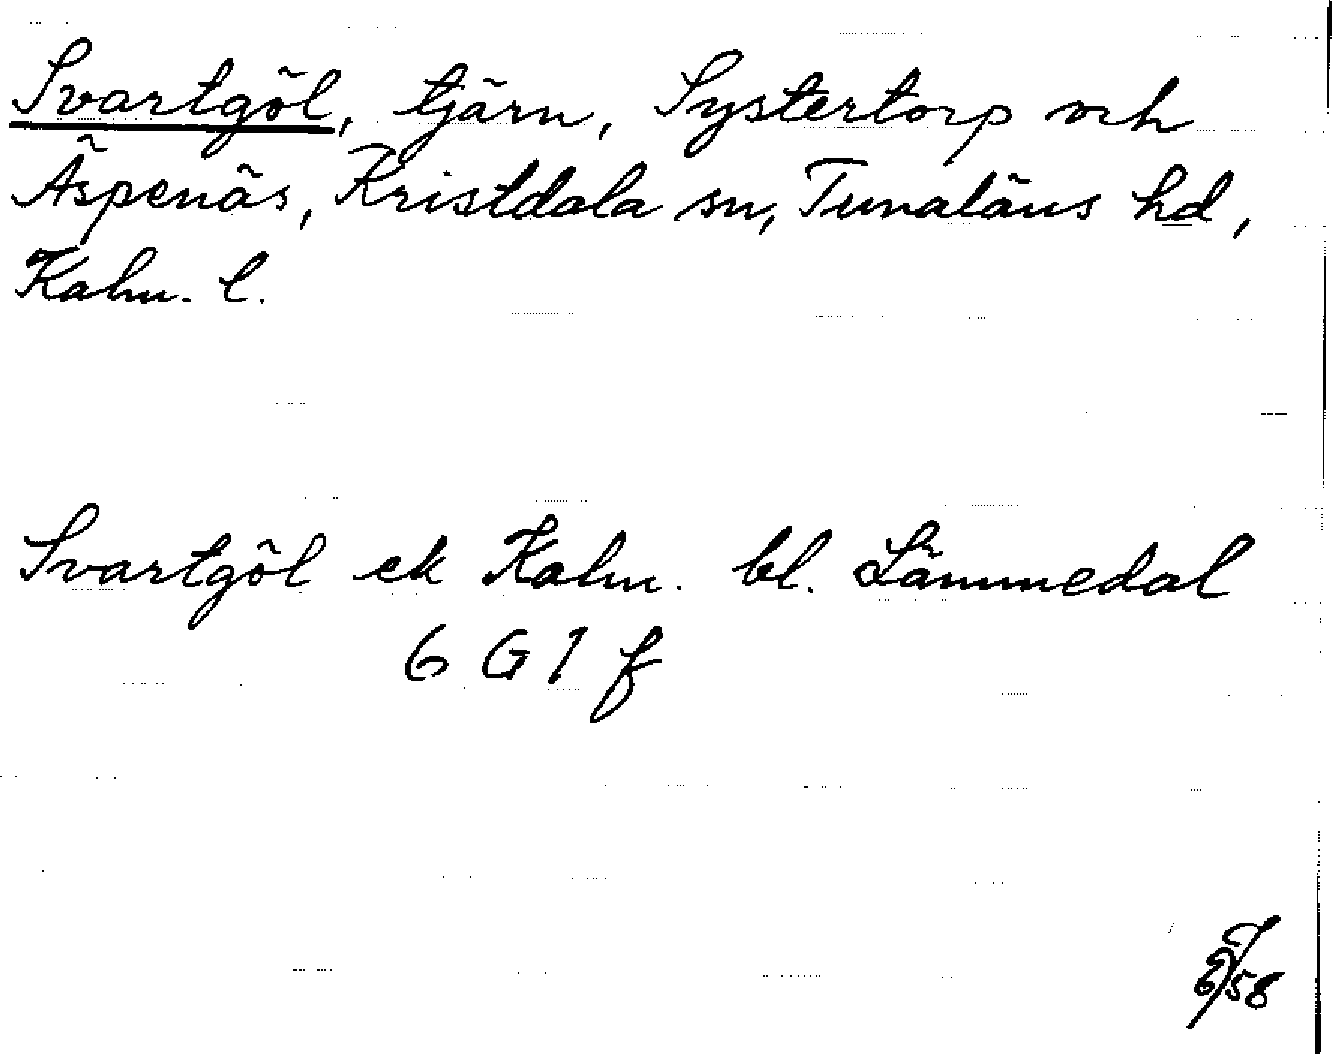 Svartgöl, tjärn, Systertorp och
Äspenäs, Kristdala sn, Tunaläns hd,
Kalm. l.
Svartgöl ek Kalm. bl. Lämmedal
6 G 1 f